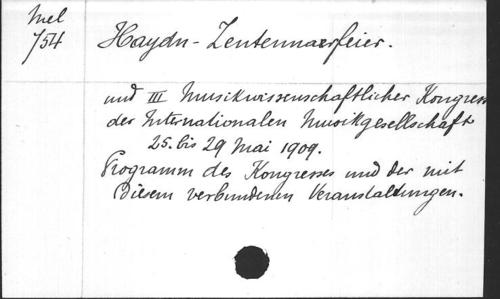 Mel
754
Haydn-Zentennarfeier.
und III Musikwissenschaftlicher Kongress
der Internationalen Musikgesellschaft
25. bis 29 Mai 1909.
Programm des Kongresses und der mit
diesem verbundenen Veranstaltungen.